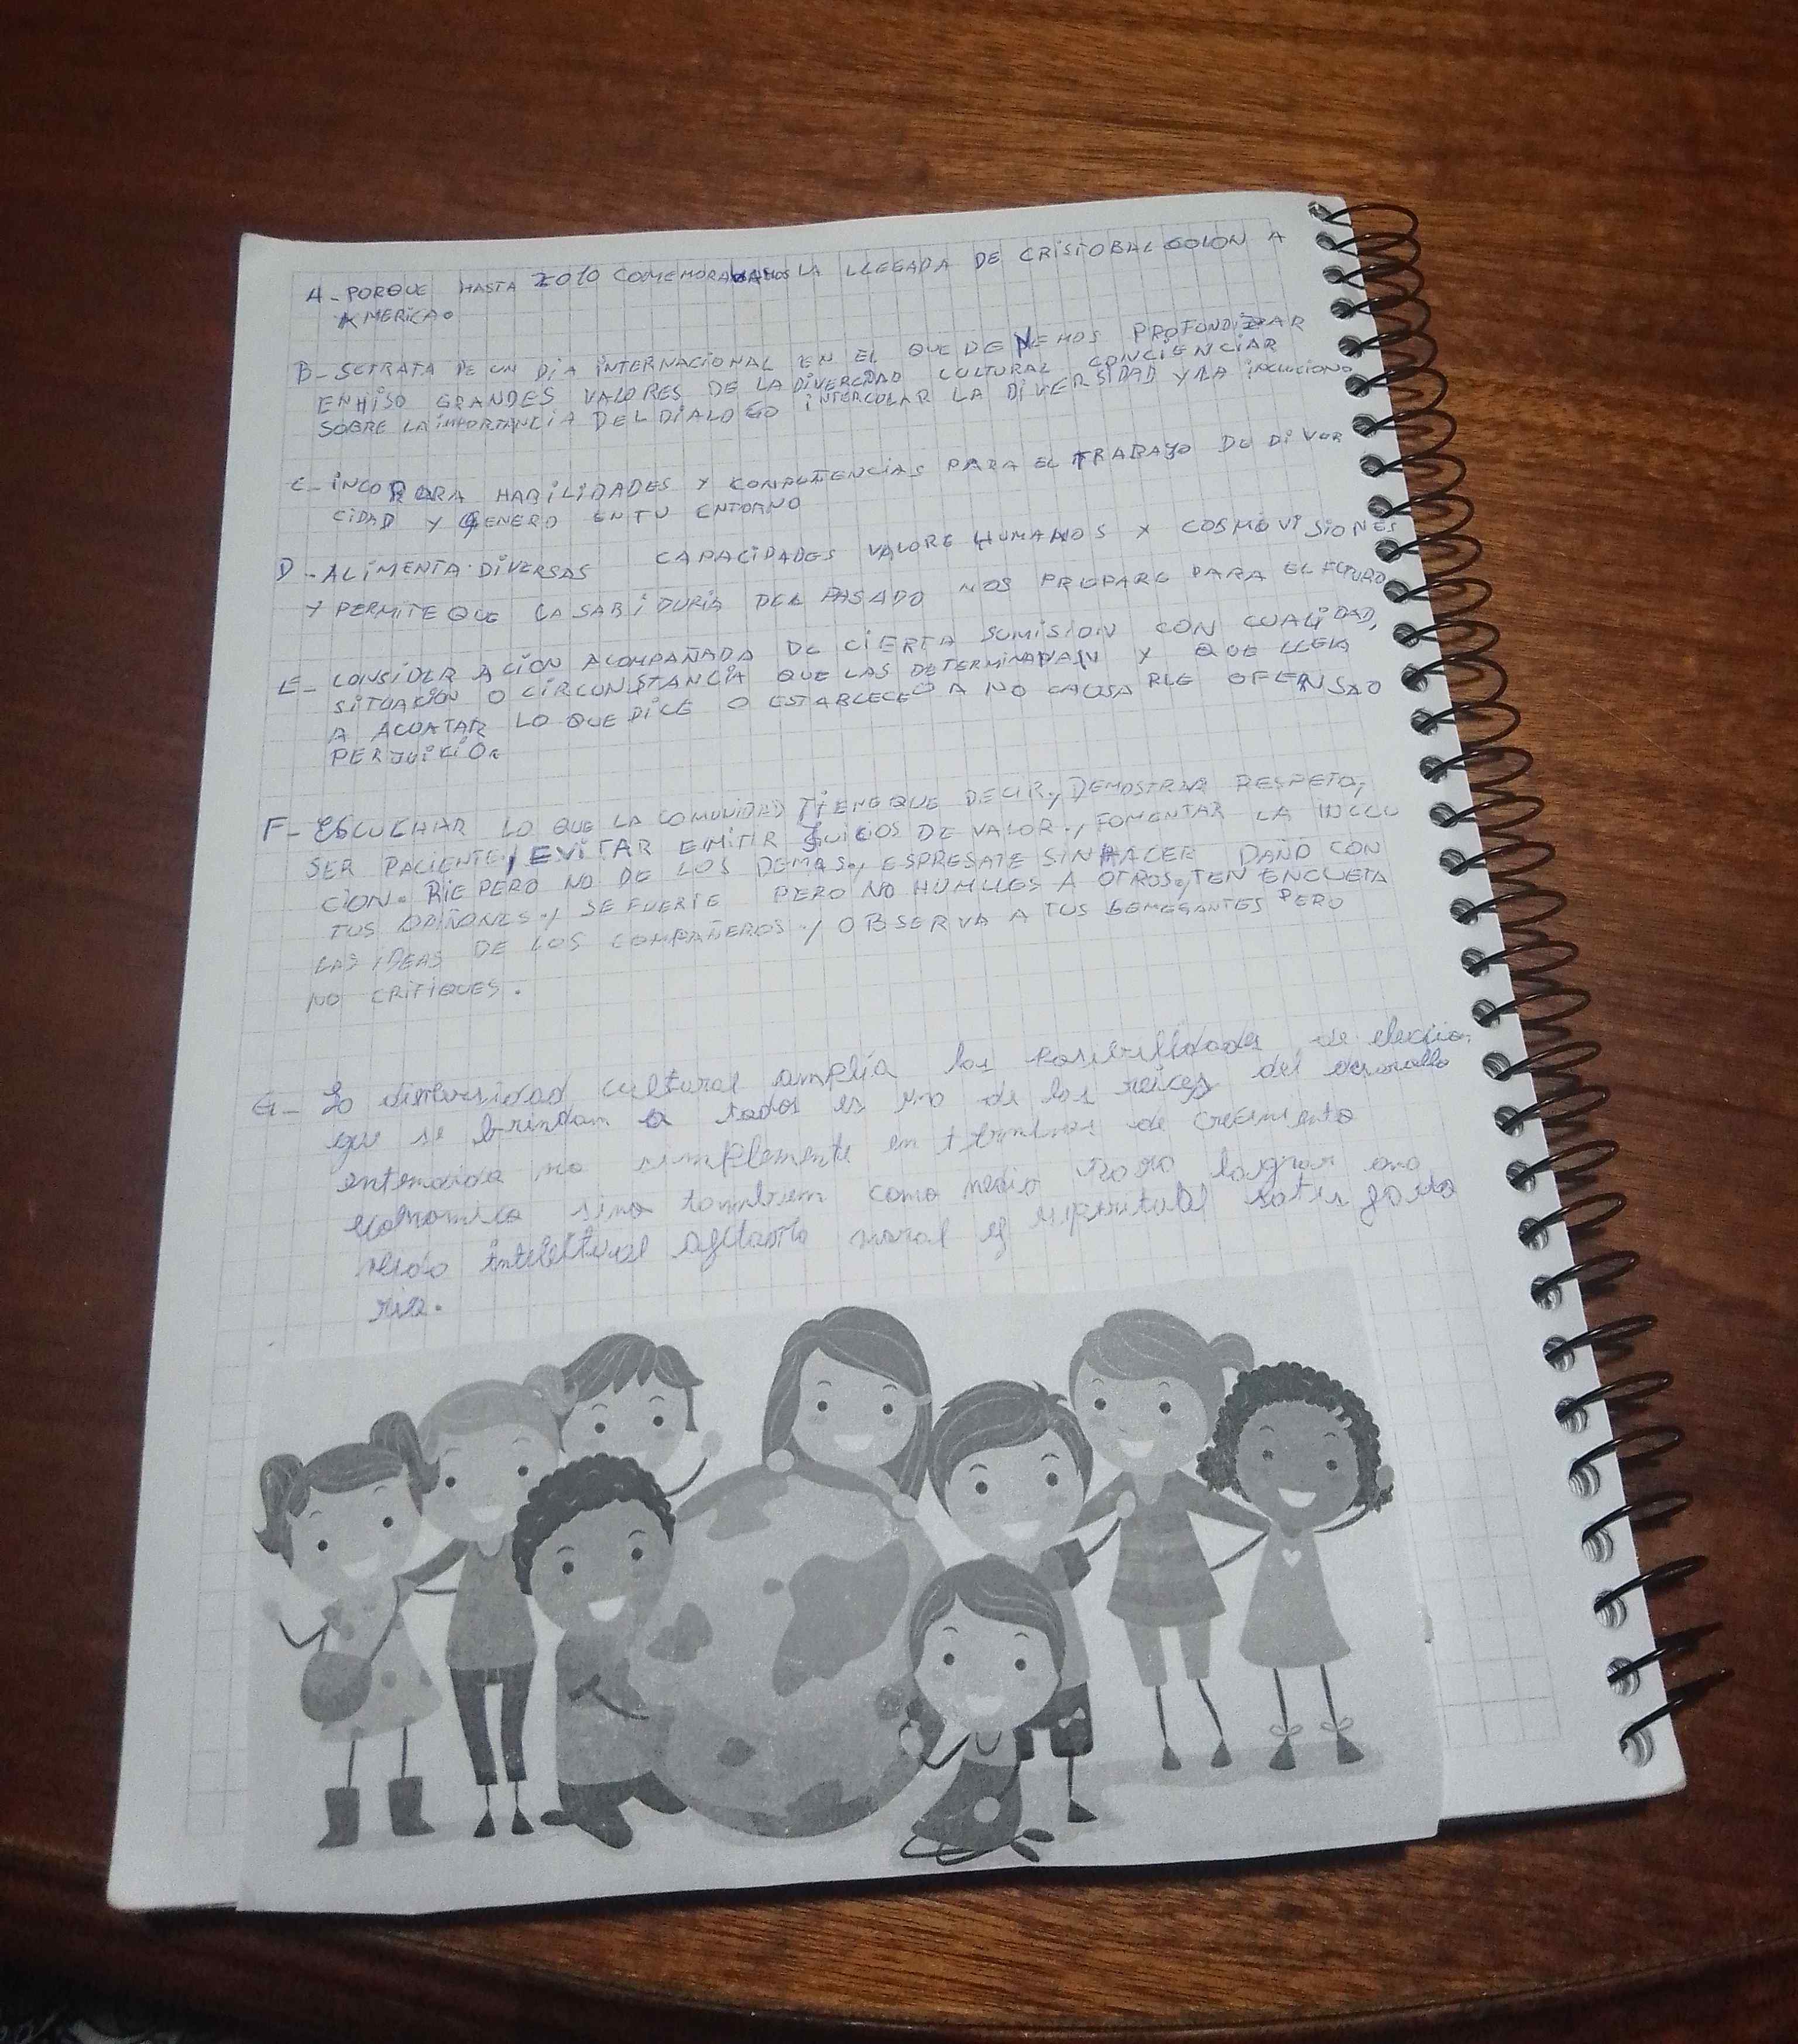 A-PORQUE HASTA 2010 COMEMORABAMOS LA LLEGADA DE CRISTOBAL COLON A
AMERICA.
B-SETRATA DE UN DIA INTERNACIONAL EN EL QUE DEVEMOS PROFUNDIZAR
ENHISO GRANDES VALORES DE LA DIVERCIDAD CULTURAL CONCIENCIAR
SOBRE LA IMPORTANCIA DEL DIALOGO INTERCULAR LA DIVERSIDAD Y LA INCLUCIONO
C-INCORPORA HABILIDADES Y COMPUTENCIAS PARA EL TRABAJO DE DIVER
CIDAD Y GENERO EN TU ENTORNO
D-ALIMENTA DIVERSAS CAPACIDADES VALORE HUMANOS Y COSMOVISIONES
Y PERMITE QUE LA SABIDURIA DEL PASADO NOS PREPARE PARA EL FUTURO
E-CONSIDERACION ACOMPAÑADA DE CIERTA SUMISION CON CUALIDAD,
SITUACION O CIRCONSTANCIA QUE LAS DETERMINAVAN Y QUE LLEVA
A ACUATAR LO QUE DICE O ESTABLECE O A NO CAUSARLE OFENSA O
PERJUICIO.
F-ESCUCHAR LO QUE LA COMUNIDAD TIENE QUE DECIR., DEMOSTRAR RESPETO,
SER PACIENTE, EVITAR EMITIR JUICIOS DE VALOR., FOMENTAR LA INCLU
CION. RIE PERO NO DE LOS DEMAS., ESPRESATE SIN HACER DAÑO CON
TUS OPIÑONES., SE FUERTE PERO NO HUMILLES A OTROS., TEN ENCUETA
LAS IDEAS DE LOS COMPAÑEROS., OBSERVA A TUS SEMEGANTES PERO
NO CRITIQUES.
G- La diversidad cultural amplía las posibilidades de eleccio.
que se brindan a todos es uno de las reices del desarollo
entendida no simplemente en terminos de crecimiento
economico sino tambien como medio para lograr una
intelectual afectivo moral y espiritual satisfacto
ria.